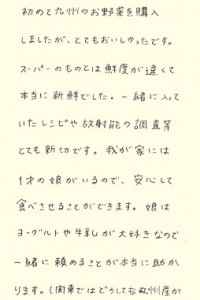 初めて九州のお野菜を購入
しましたが、とてもおいしかったです。
スーパーのものとは鮮度が違くて
本当に新鮮でした。一緒に入って
いたレシピや放射能の調査等
とても親切です。我が家には
1才の娘がいるので、安心して
食べさせることができます。娘は
ヨーグルトや牛乳が大好きなので
一緒に頼めることが本当に助か
ります。(関東ではどうしても九州産が